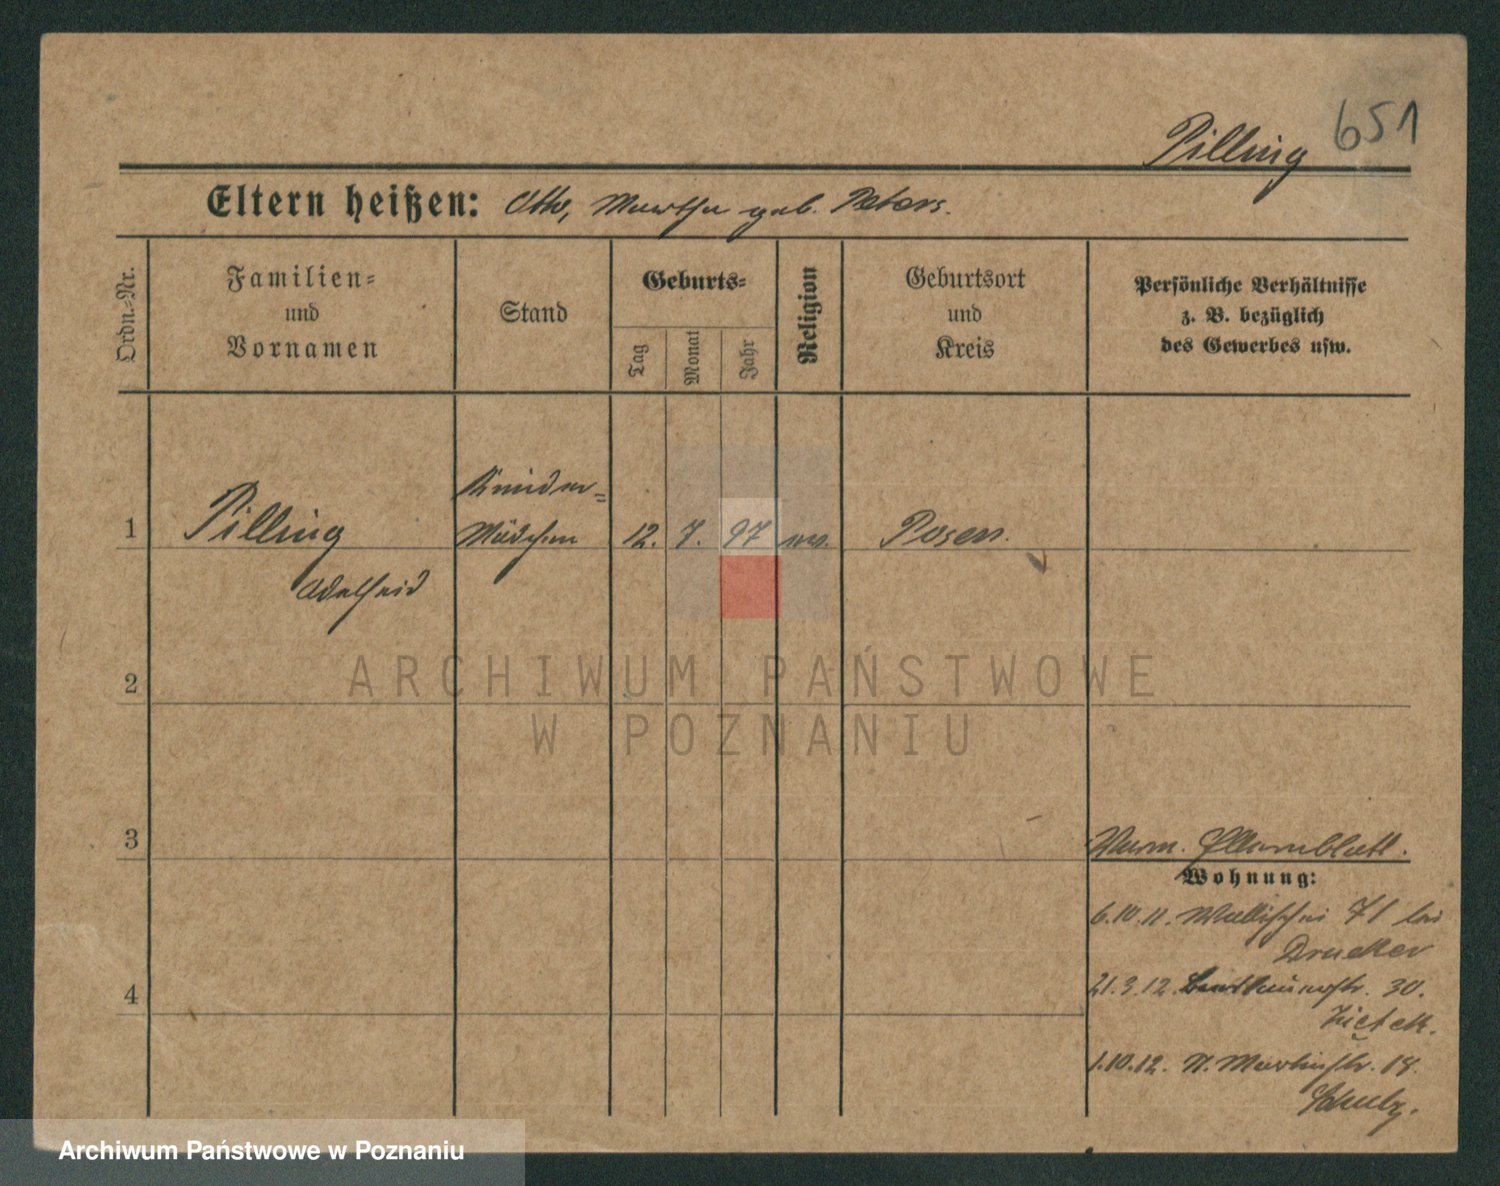 651
Pilling
Eltern heißen: Otto, Martha geb. Peters.
Ordn.=Nr.
Familien=
und
Vornamen
Stand
Geburts=
Tag
Monat
Jahr
Religion
Geburtsort
und
Kreis
Persönliche Verhältnisse
z. B. bezüglich
des Gewerbes usw.
1
Pilling
Adelheid
Kinder=
Mädchen
12. 7. 97
Posen.
2
3
4
Elternblatt.
Wohnung:
6.10.11. Wallischei 71 bei
Drucker
21.3.12. 30.
1.10.12. St. Martinstr. 18.
Schulz.
ARCHIWUM PAŃSTWOWE
W POZNANIU
Archiwum Państwowe w Poznaniu